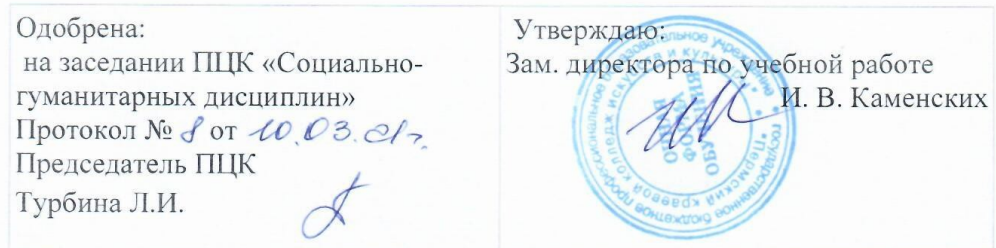 Одобрена:
на заседании ПЦК «Социально-
гуманитарных дисциплин»
Протокол № 8 от 10.03.21г.
Председатель ПЦК
Турбина Л.И.
Утверждаю:
Зам. директора по учебной работе
И. В. Каменских
государственное бюджетное профессиональное образовательное учреждение
"Пермский краевой колледж искусств и культуры"
ОЧНАЯ
ФОРМА
ОБУЧЕНИЯ